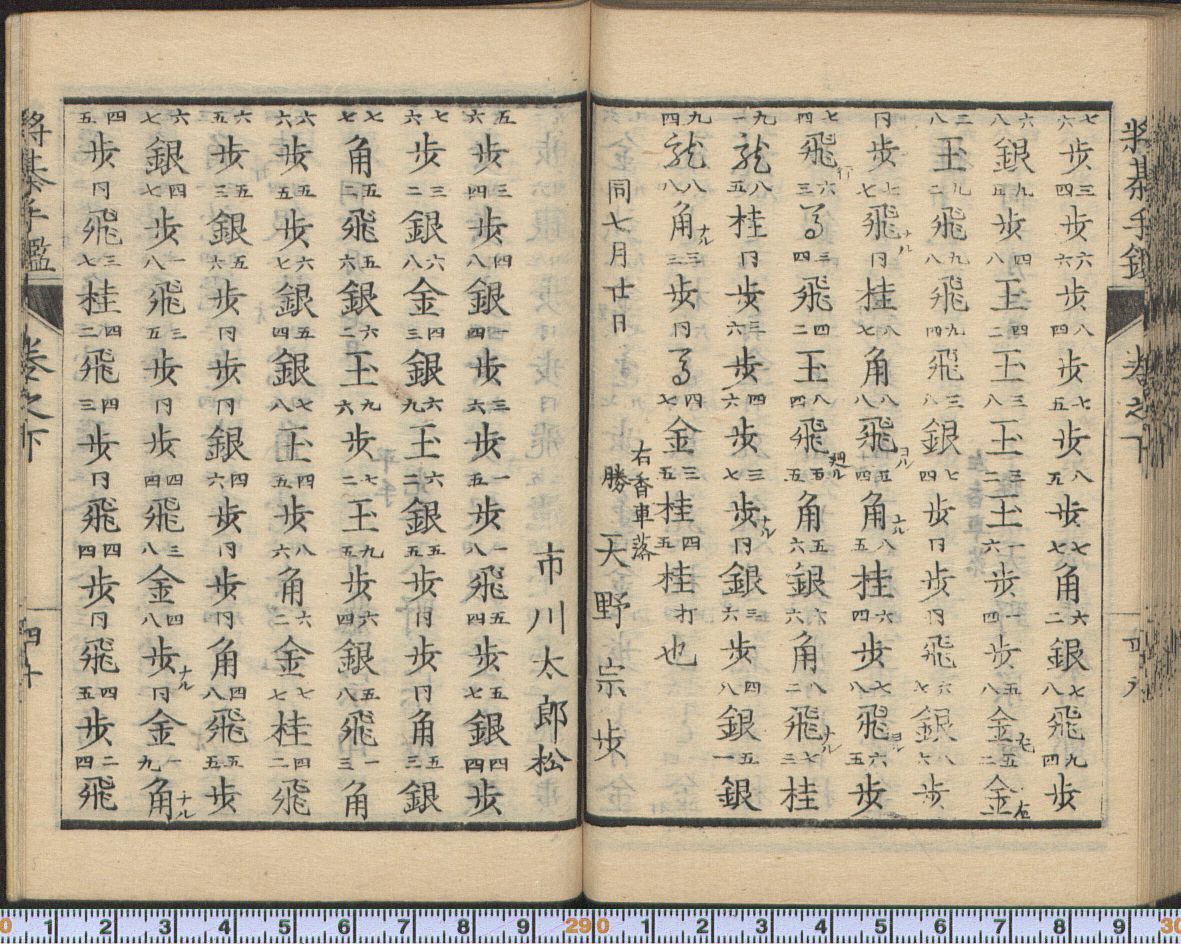 将棊手鑑 巻之下
七六歩三四歩六六歩八四歩七五歩八五歩七七角六二銀七八飛九四歩
六八銀九五歩四八玉四二玉三八玉三二玉一六歩一四歩五八金左五二金右
二八玉九二飛九八飛九四飛三八銀七四歩同歩同飛六七銀八六歩
同歩七七飛ナル同桂八七角八八飛ヨル五四角ナル八五桂六四歩七八飛ヨル六五歩
七四飛行六三馬三四飛四二玉八四飛廻ル五五角五六銀六六角八二飛ナル七三桂
九一龍八五桂同歩三六歩四六歩三七歩ナル同銀三六歩四八銀五一銀
九四龍八八角ナル三三歩同馬四七金三五桂四五桂打也
同七月廿日
右香車落
勝 天野宗歩
市川太郎松
五六歩三四歩四八銀一四歩三六歩一五歩一八飛五四歩五七銀四四歩
七六歩三二銀六八金四三銀六九玉六二銀五五歩同歩同角五三銀
七七角五二飛五六銀六二玉九六歩七二玉九五歩六四銀五八飛一三角
六六歩五五歩六七銀五四銀七八玉四五歩八六角六二金七七桂四二飛
六五歩三五銀五六歩同歩同銀四六歩同歩同角四八飛五五歩
六七銀四七歩一八飛三五歩同歩四四飛三八金四八歩ナル同金一九角ナル
四五歩同飛三七桂四二飛四三歩同飛四四歩同飛四五歩二四飛
将棊手鑑 巻之下 四十